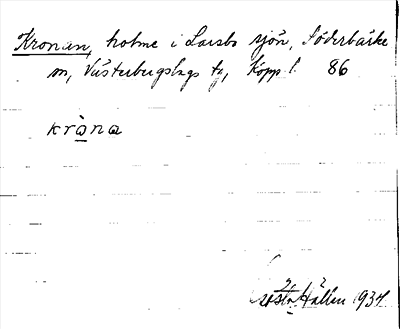 Kronan, holme i Larsbo sjön, Söderbärke
sn, Västerbergslags tg, Kopp. l. 86
kròna
Gösta Hallén 1934